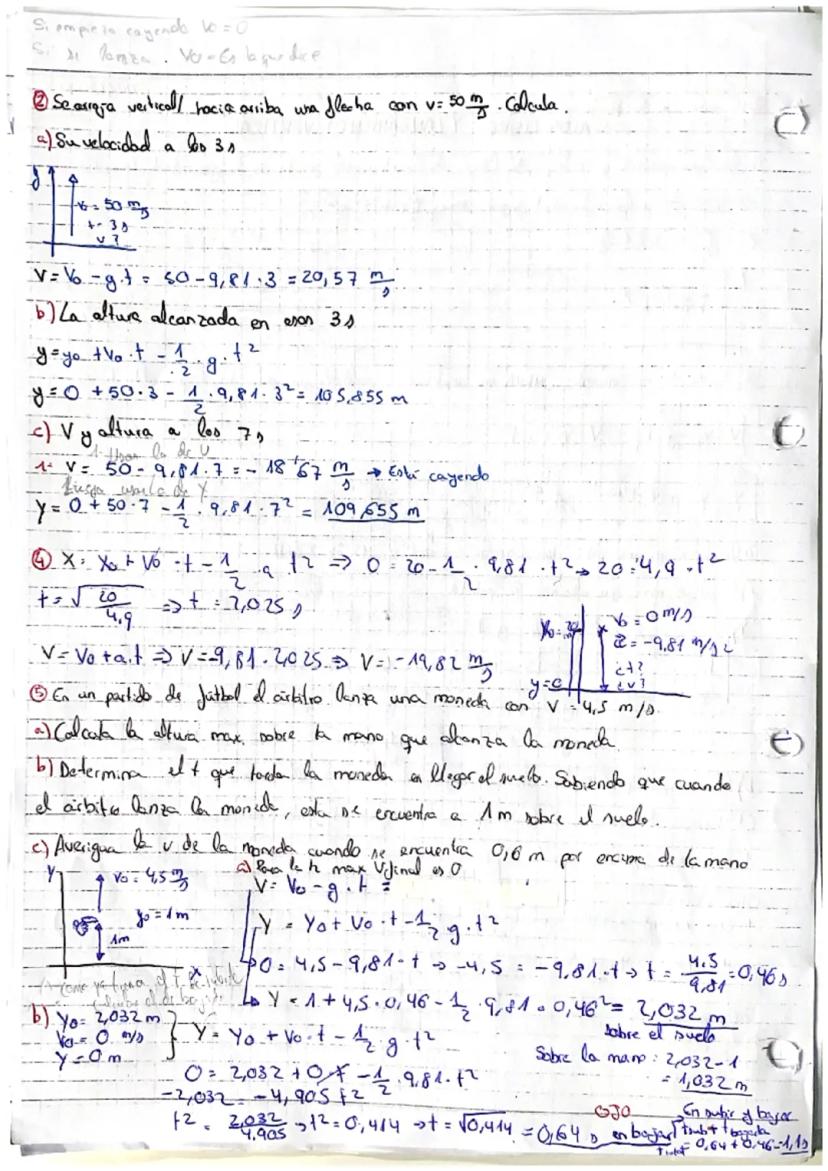 Si empieza cayendo V0 = 0
Si se lanza. V0 = Es la que dice
② Se arroja vertical/ hacia arriba una flecha con v = 50 m/s. Calcula.
a) Su velocidad a los 3 s
y
v0 = 50 m/s
t = 3 s
v?
V = V0 - g.t = 50 - 9,81 · 3 = 20,57 m/s
b) La altura alcanzada en esos 3 s
y = y0 + V0 · t - 1/2 · g · t²
y = 0 + 50 · 3 - 1/2 · 9,81 · 3² = 105,855 m
c) V y altura a los 7 s
1- Usar la de V
1- V = 50 - 9,81 · 7 = -18'67 m/s → Está cayendo
Luego usar la de Y
Y = 0 + 50 · 7 - 1/2 · 9,81 · 7² = 109,655 m
④ X = X0 + V0 · t - 1/2 a t² ⇒ 0 = 20 - 1/2 · 9,81 · t² → 20 = 4,9 · t²
t = √20/4,9 ⇒ t = 2,025 s
V0 = 0 m/s
a = -9,81 m/s²
¿t?
¿v?
V = V0 + a.t ⇒ V = -9,81 · 2025 ⇒ V = -19,82 m/s
y = 0
⑤ En un partido de fútbol el árbitro lanza una moneda con V = 4,5 m/s
a) Calcula la altura max. sobre la mano que alcanza la moneda
b) Determina el t que tarda la moneda en llegar al suelo. Sabiendo que cuando
el árbitro lanza la moneda, esta se encuentra a 1 m sobre el suelo.
c) Averigua la v de la moneda cuando se encuentra 0,6 m por encima de la mano
a) Para la h max Vfinal es 0
Y
V0 = 4,5 m/s
y0 = 1 m
1m
x
V = V0 - g · t =
Y = Y0 + V0 · t - 1/2 g · t²
0 = 4,5 - 9,81 · t → -4,5 = -9,81 · t → t = 4,5/9,81 = 0,46 s
Y = 1 + 4,5 · 0,46 - 1/2 · 9,81 · 0,46² = 2,032 m
sobre el suelo
Sobre la mano: 2,032 - 1
= 1,032 m
b) Y0 = 2,032 m
V0 = 0 m/s
Y = 0 m
Y = Y0 + V0 · t - 1/2 g · t²
0 = 2,032 + 0 · t - 1/2 · 9,81 · t²
-2,032 = -4,905 t²
t² = 2,032/4,905 → t² = 0,414 → t = √0,414 = 0,64 s en bajar
OJO
En subir y bajar
tsub + tbajada
Ttotal = 0,64 + 0,46 = 1,1 s